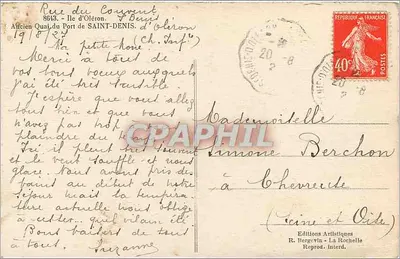 Rue du Couvent
8643. - Ile d'Oléron. St Denis
Ancien Quai du Port de SAINT-DENIS. d'Oléron
19/8/27 (Ch. Infre)
Ma petite Mone !
Merci à tous de
vos bons voeux auxquels
j'ai été très sensible.
J'espère que vous allez
tous bien et que vous
n'avez pas trop à vous
plaindre du temps.
Ici il pleut très souvent
et le vent souffle et nous
glace. Nous avons pris des
bains au début de notre
séjour mais la tempéra-
ture actuelle nous oblige
à rester... quel vilain été
Bons baisers de tous
à tous. Suzanne
RÉPUBLIQUE FRANÇAISE
40c
POSTES
20 -8
20 -8
CPAPHIL
Mademoiselle
Simone Berchon
à Chevreuse
(Seine et Oise)
Editions Artistiques
R. Bergevin - La Rochelle
Reprod. Interd.